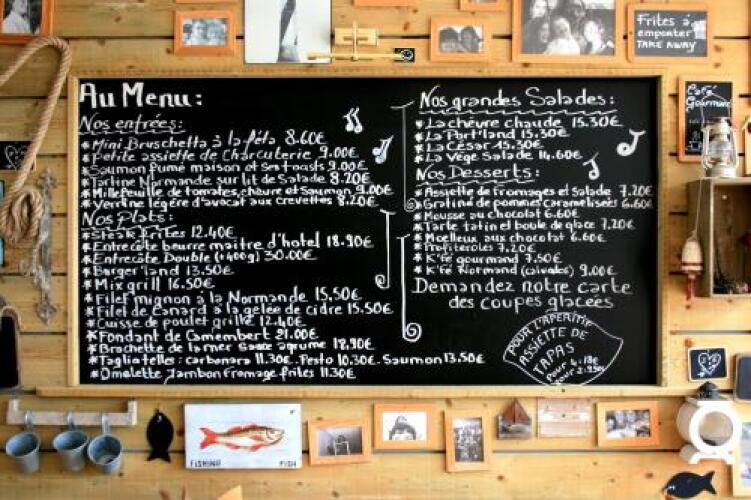 Au Menu:
Nos entrées:
* Mini Bruschetta à la féta 8.60€
* Petite assiette de Charcuterie 9.00€
* Saumon fumé maison et ses toasts 9.00€
* Tartine Normande sur lit de Salade 8.20€
* Millefeuille de tomates, chèvre et Saumon 9.00€
* Verrine légère d'avocat aux crevettes 8.20€
Nos Plats:
* Steak frites 12.40€
* Entrecôte beurre maître d'hotel 18.90€
* Entrecôte Double (+400g) 30.00€
* Burger'land 13.50€
* Mix grill 16.50€
* Filet mignon à la Normande 15.50€
* Filet de Canard à la gelée de cidre 15.50€
* Cuisse de poulet grillé 12.40€
* Fondant de Camembert 21.00€
* Brochette de la mer Sauce agrume 18.90€
* Tagliatelle: carbonara 11.30€. Pesto 10.30€. Saumon 13.50€
* Omelette Jambon fromage frites 11.30€
Nos grandes Salades:
* La chèvre chaude 15.30€
* La Port'land 15.30€
* La César 15.30€
* La Végé Salade 14.60€
Nos Desserts:
* Assiette de fromages et salade 7.20€
* Gratiné de pommes caramelisées 6.60€
* Mousse au chocolat 6.60€
* Tarte tatin et boule de glace 7.20€
* Moelleux aux chocolat 6.60€
* Profiteroles 7.20€
* K'fé gourmand 7.50€
* K'fé Normand (calvados) 9.00€
Demandez notre carte
des coupes glacées
POUR L'APERITIF
ASSIETTE DE
TAPAS
Frites à
emporter
TAKE AWAY
Café
Gourmand
FISHING
FISH